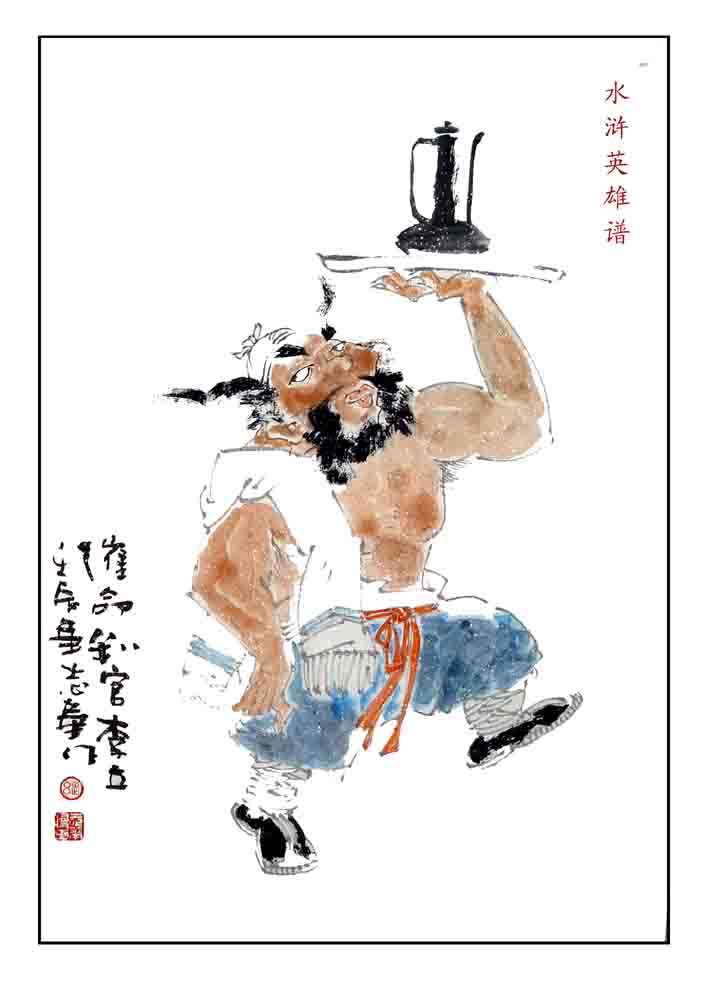 水浒英雄谱
催命判官李立
壬辰志作